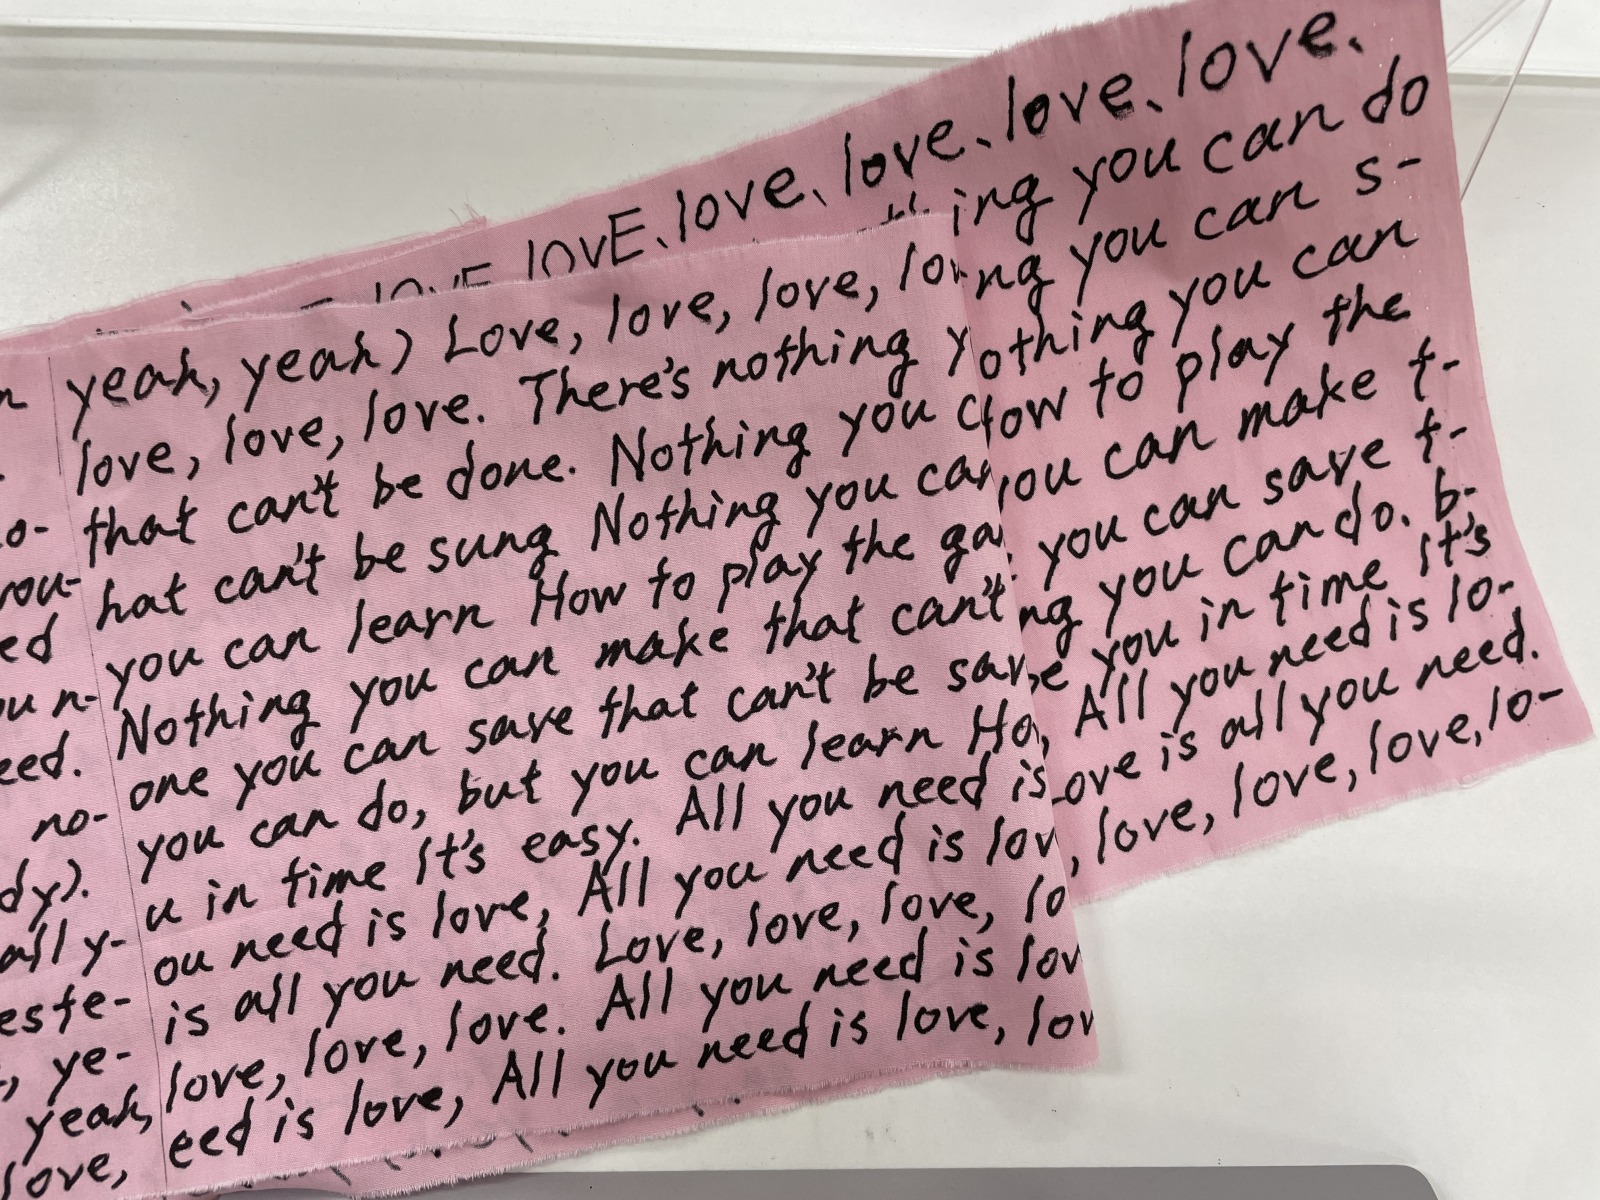 yeah, yeah) Love, love, love, lov
love, love, love. There's nothing y
that can't be done. Nothing you c
hat can't be sung Nothing you can
you can learn How to play the ga
Nothing you can make that can't
one you can save that can't be sav
you can do, but you can learn Ho
u in time It's easy. All you need is
ou need is love, All you need is lov
is all you need. Love, love, love, lo
love, love, love. All you need is lov
eed is love, All you need is love, lov
o-
you-
ed
ou n-
eed.
no-
dy).
all y-
este-
, ye-
yeah,
love,
LOVE LOVE、love、love、love、love、
thing you can do
ng you can s-
othing you can
How to play the
you can make t-
you can save t-
ng you can do. b-
e you in time It's
, All you need is lo-
Love is all you need.
, love, love, love, lo-